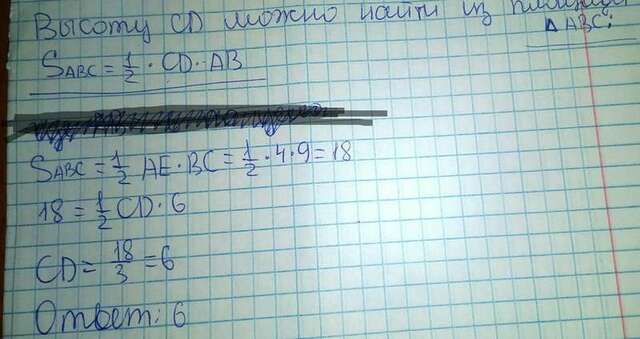 Высоту CD можно найти из площади
△ ABC:
S ABC = 1/2 · CD · AB
S ABC = 1/2 AE · BC = 1/2 · 4 · 9 = 18
18 = 1/2 CD · 6
CD = 18/3 = 6
Ответ: 6